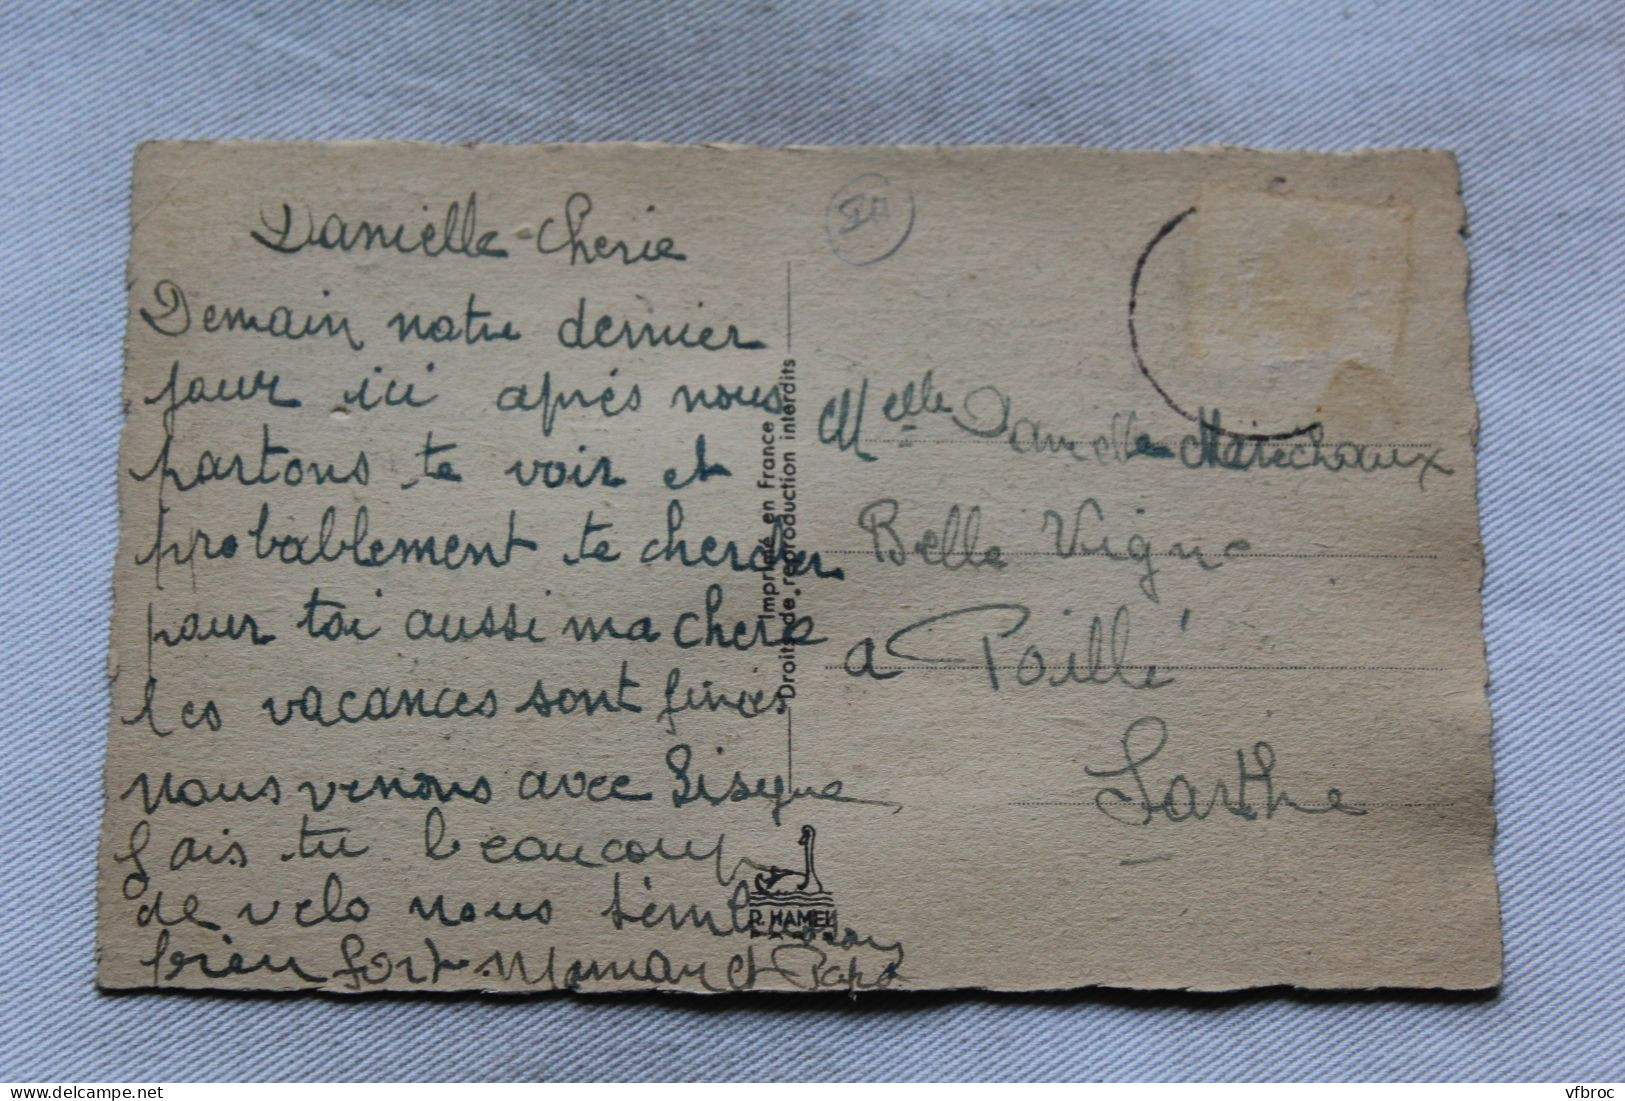 Danielle Cherie
Demain notre dernier
jour ici après nous
partons te voir et
probablement te chercher
pour toi aussi ma cherie
les vacances sont finies
nous venons avec
fais tu beaucoup
de velo nous
bien fort Maman et Papa
Imprimé en France
Droits de reproduction interdits
R. HAMEL
Melle Danielle Maréchaux
Belle Vigne
a Poillé
Sarthe
vfbroc